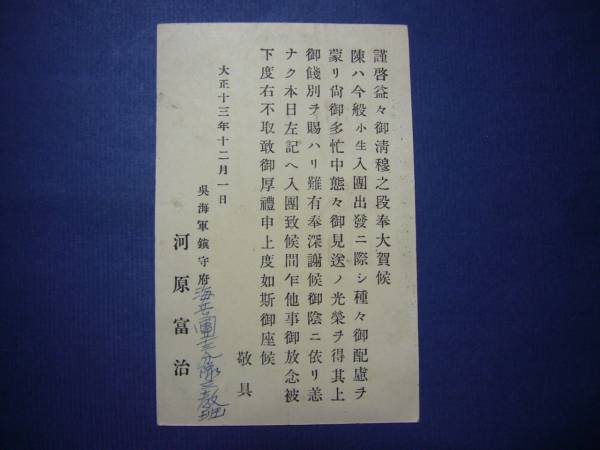 謹啓益々御淸穆之段奉大賀候
陳ハ今般小生入團出發ニ際シ種々御配慮ヲ
蒙リ尙御多忙中態々御見送ノ光榮ヲ得其上
御餞別ヲ賜ハリ難有奉深謝候御陰ニ依リ恙
ナク本日左記ヘ入團致候間乍他事御放念被
下度右不取敢御厚禮申上度如斯御座候
敬具
大正十三年十二月一日
吳海軍鎭守府海兵團
河原富治